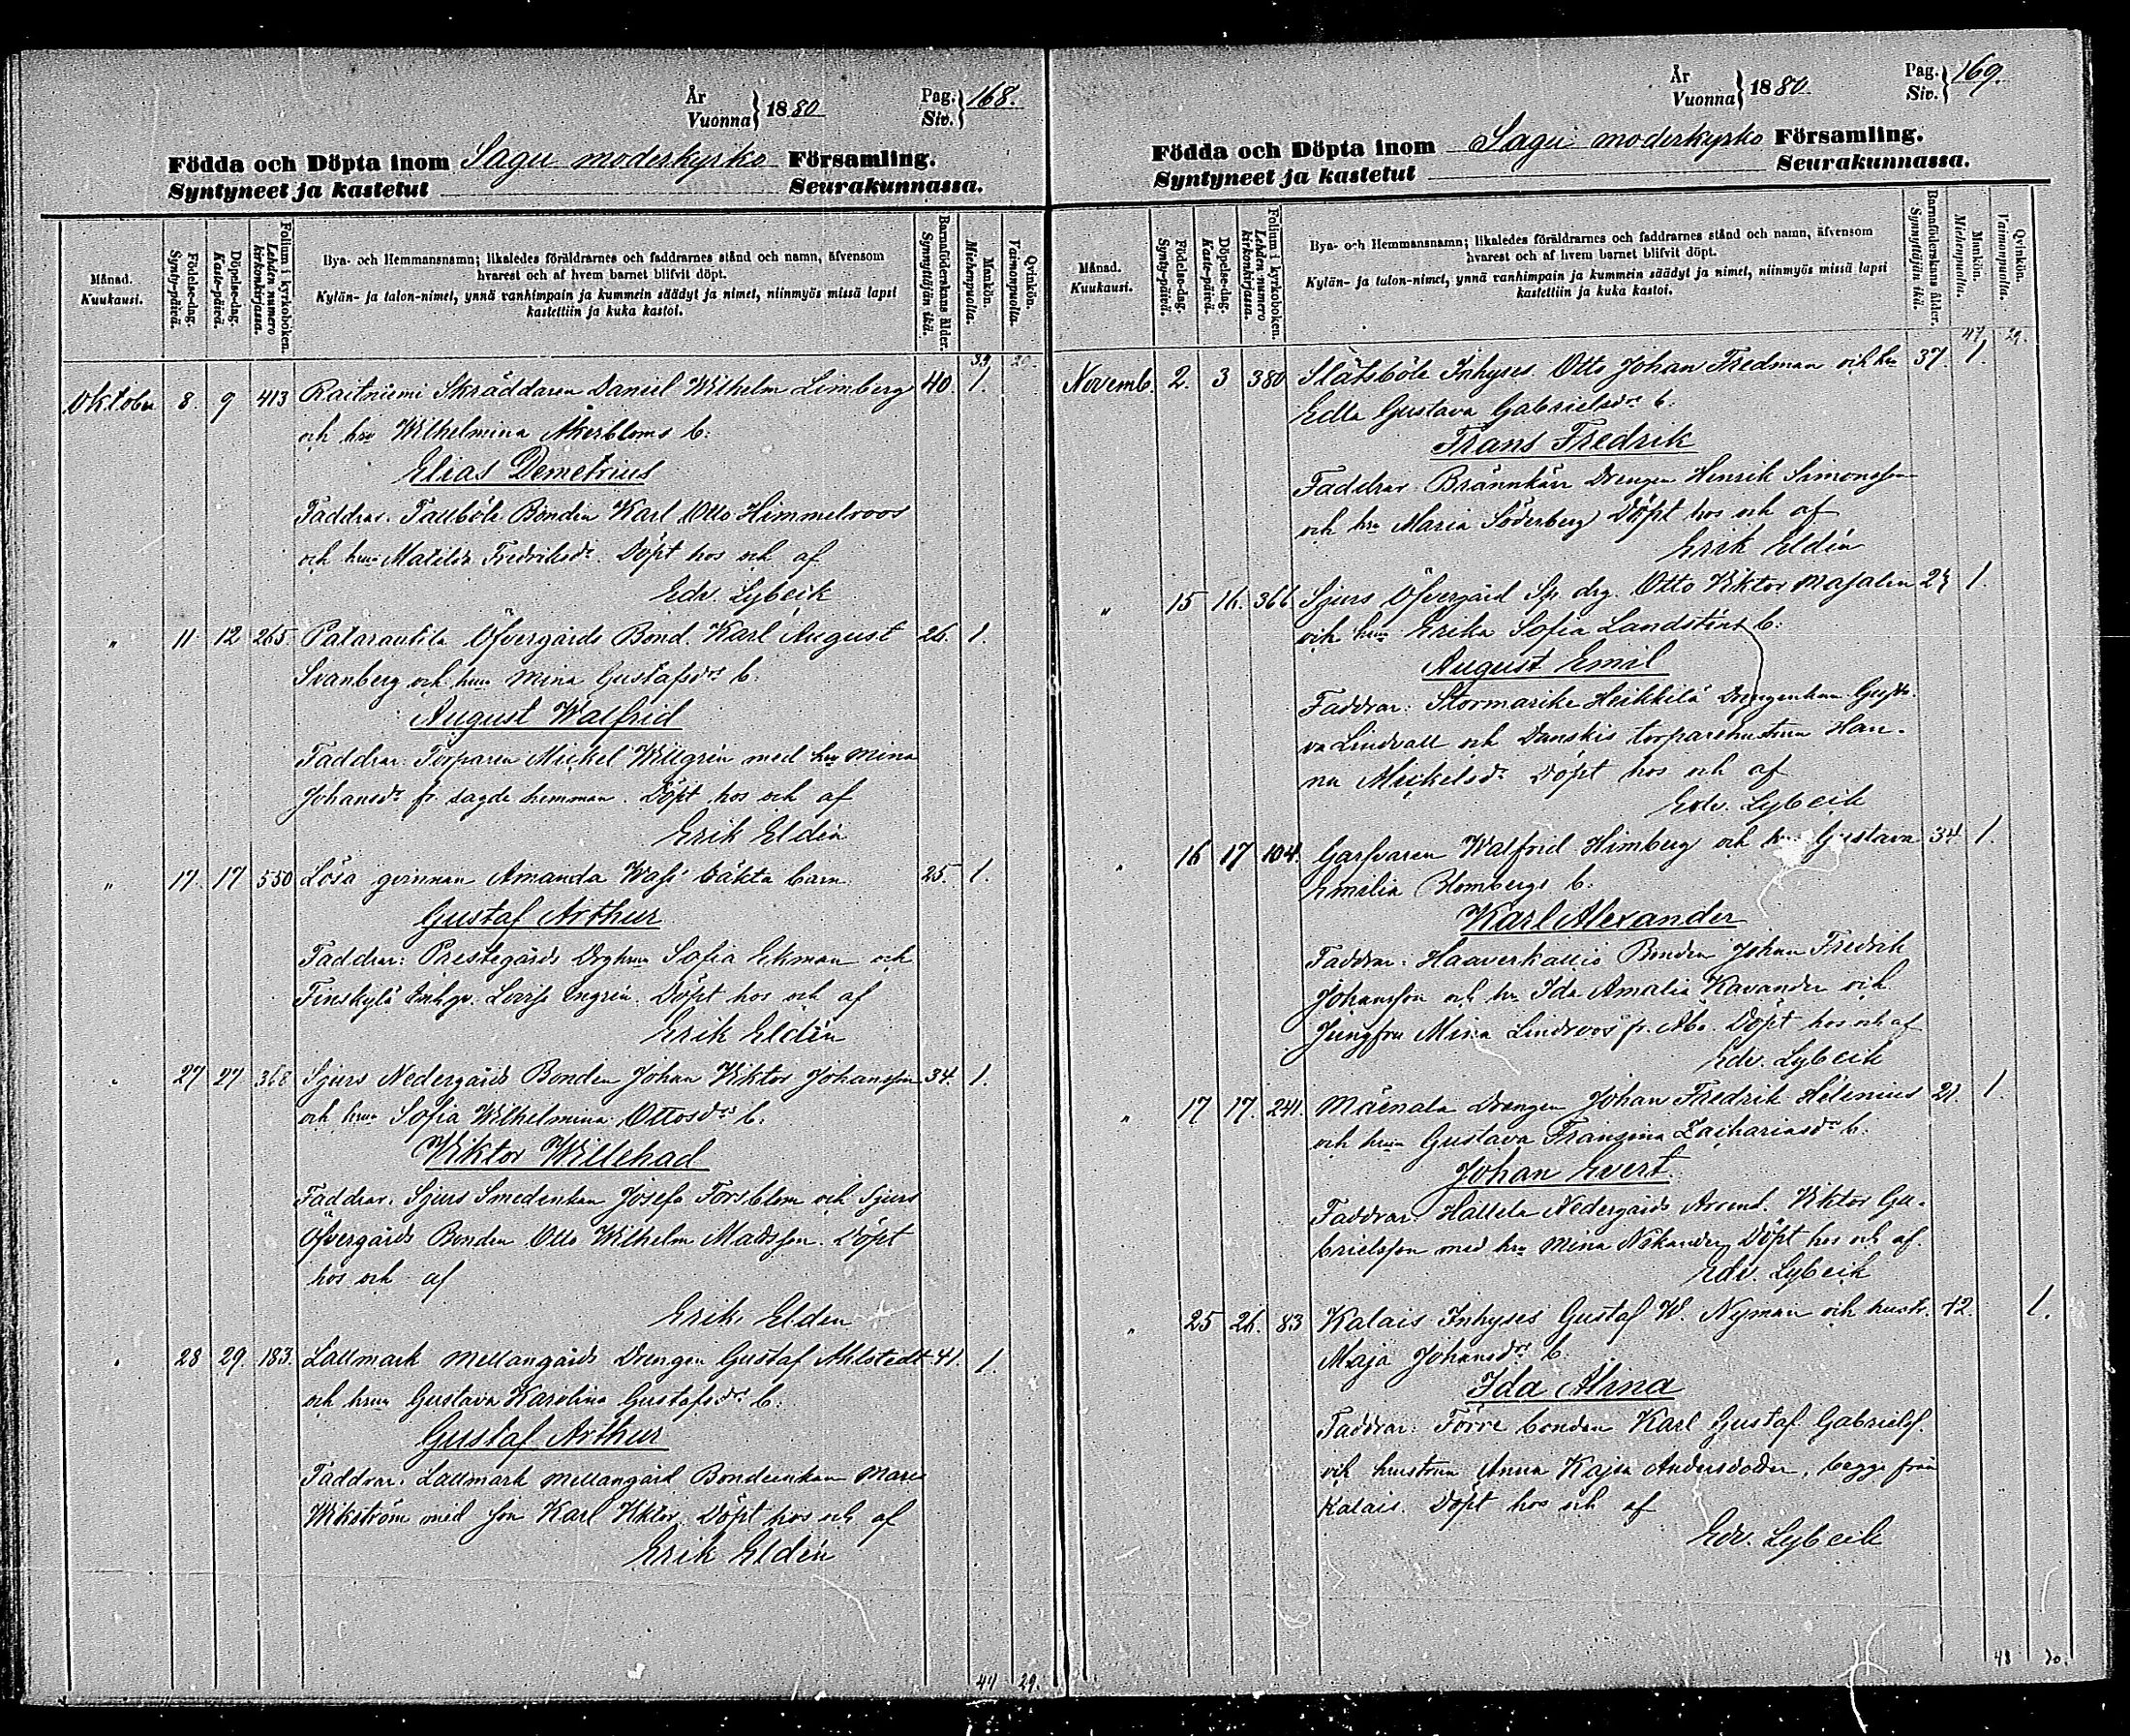 År
Vuonna } 1880
Pag.
Siv. } 168.
Födda och Döpta inom Sagu moderkyrko Församling.
Syntyneet ja kastetut Seurakunnassa.
Månad.
Kuukausi.
Födelse-dag.
Synty-päivä.
Döpelse-dag.
Kaste-päivä.
Folium i kyrkoboken.
Lehden numero kirkonkirjassa.
Bya- och Hemmansnamn; likaledes föräldrarnes och faddrarnes stånd och namn, äfvensom
hvarest och af hvem barnet blifvit döpt.
Kylän- ja talon-nimet, ynnä vanhimpain ja kummein säädyt ja nimet, niinmyös missä lapsi
kastettiin ja kuka kastoi.
Barnaföderskans ålder.
Synnyttäjän ikä.
Mankön.
Miehenpuolia.
Qvinkön.
Vaimonpuolia.
39 20.
Oktober 8. 9 413 Raitniemi Skräddaren Daniel Wilhelm Limberg 40. 1.
och hru Wilhelmina Åkerbloms b:
Elias Demetrius
Faddrar. Tallböle Bonden Karl Otto Himmelroos
och hru Matilda Fredriksdr. Döpt hos och af
Edv. Lybeck
" 11. 12 265. Patarautila Öfvergårds Bond. Karl August 26. 1.
Svanberg och hru Mina Gustafsdrs b.
August Walfrid
Faddrar: Torparen Mickel Willgrén med hru Mina
Johansdr fr. sagde hemman. Döpt hos och af
Erik Eldén
" 17. 17 550 Lösa qvinnan Amanda Wass' oäkta barn. 25. 1.
Gustaf Arthur
Faddrar: Prestegårds Drghru Sofia Ekman och
Finskylä Lovisa Engrén. Döpt hos och af
Erik Eldén
" 27 27 368 Sjurs Nedergårds Bonden Johan Viktor Johansson 34. 1.
och hru Sofia Wilhelmina Ottosdrs b.
Viktor Willehad
Faddrar. Sjurs Smedenkan Josefa Forsblom och Sjurs
Öfvergårds Bonden Otto Wilhelm Madsson. Döpt
hos och af
Erik Eldén
" 28 29. 183. Lallmark Mellangårds Drengen Gustaf Ahlstedt 41. 1.
och hrus Gustava Karolina Gustafsdrs b.
Gustaf Arthur
Faddrar. Lallmark Mellangård Bondeenkan Maria
Wikström med son Karl Viktor. Döpt hos och af
Erik Eldén
44 29.
År
Vuonna } 1880.
Pag.
Siv. } 169.
Födda och Döpta inom Sagu moderkyrko Församling.
Syntyneet ja kastetut Seurakunnassa.
Månad.
Kuukausi.
Födelse-dag.
Synty-päivä.
Döpelse-dag.
Kaste-päivä.
Folium i kyrkoboken.
Lehden numero kirkonkirjassa.
Bya- och Hemmansnamn; likaledes föräldrarnes och faddrarnes stånd och namn, äfvensom
hvarest och af hvem barnet blifvit döpt.
Kylän- ja talon-nimet, ynnä vanhimpain ja kummein säädyt ja nimet, niinmyös missä lapsi
kastettiin ja kuka kastoi.
Barnaföderskans ålder.
Synnyttäjän ikä.
Mankön.
Miehenpuolia.
Qvinkön.
Vaimonpuolia.
44 29.
Novemb. 2. 3 380 Slätsböle Inhyses Otto Johan Fredman och hu 37. 1.
Edla Gustava Gabrielsdrs b.
Frans Fredrik
Faddrar. Brännkärr Drengen Henrik Simonsson
och hru Maria Söderberg Döpt hos och af
Erik Eldén
" 15 16. 366. Sjurs Öfvergård Sp. drg. Otto Viktor Majalin 24 1.
och hrus Erika Sofia Landsténs b:
August Emil
Faddrar: Stormarike Heikkilä Drengenkan Gusta-
va Lindvall och Danskis torparehustrun Han-
na Mickelsdr Döpt hos och af
Edv. Lybeck
" 16 17 104. Garfvaren Walfrid Himberg och hru Gustava 34 1.
Emelia Blombergs b.
Karl Alexander
Faddrar. Haaverkallio Bonden Johan Fredrik
Johansson och hru Ida Amalia Kavander och
Jungfru Mina Lindroos fr. Åbo. Döpt hos och af
Edv. Lybeck
" 17 17. 241. Mäenala Drengen Johan Fredrik Helenius 21. 1.
och hrus Gustava Fransina Zachariasdrs b.
Johan Evert.
Faddrar: Hallela Nedergårds Arrend. Viktor Ga-
brielsson med hru Mina Döpt hos och af.
Edv. Lybeck
" 25 26. 83 Kalais Inhyses Gustaf W. Nyman och hustr. 42. 1.
Maja Johansdrs b.
Ida Alina
Faddrar: Förre bonden Karl Gustaf Gabrielss.
och hustrun Anna Kajsa Andersdotter, begge från
Kalais. Döpt hos och af
Edv. Lybeck
48 30.